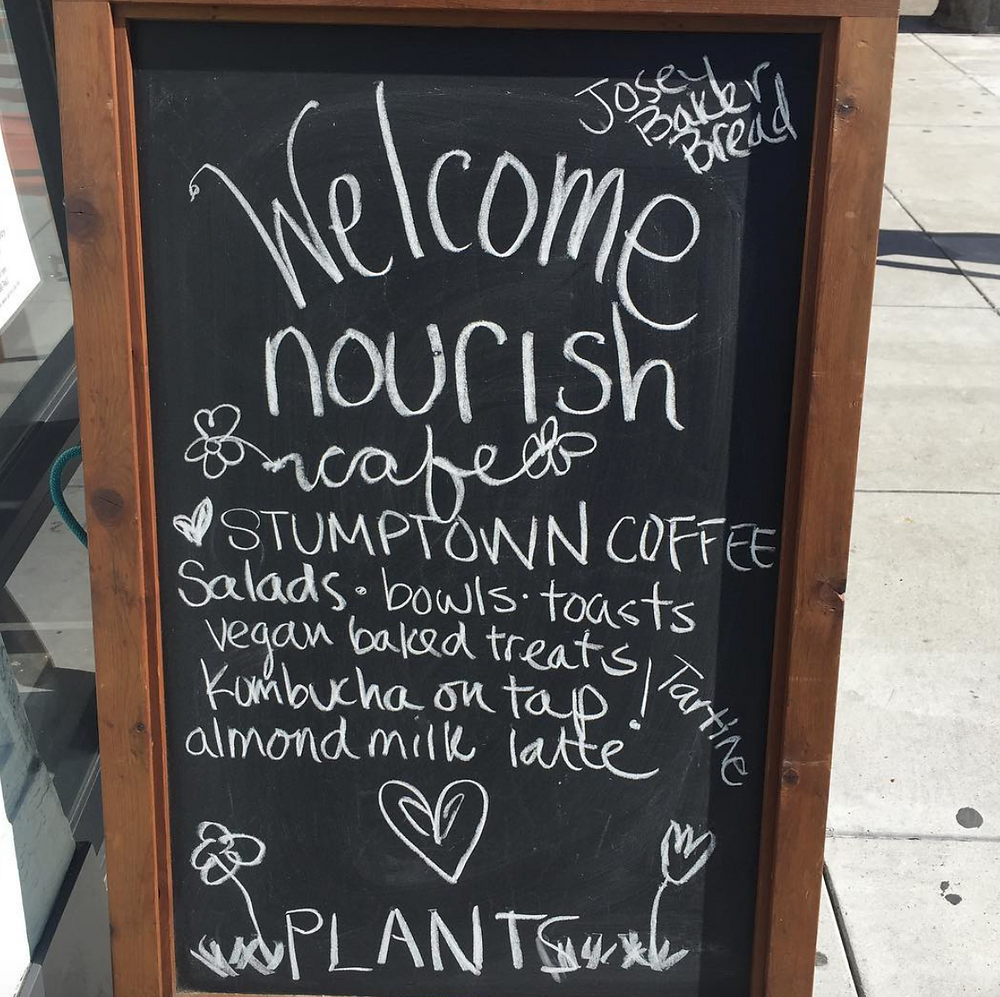 Josey
Baker
Bread
Welcome
nourish
cafe
STUMPTOWN COFFEE
Salads • bowls • toasts
vegan baked treats
Kombucha on tap!
almond milk latte
Tartine
PLANTS